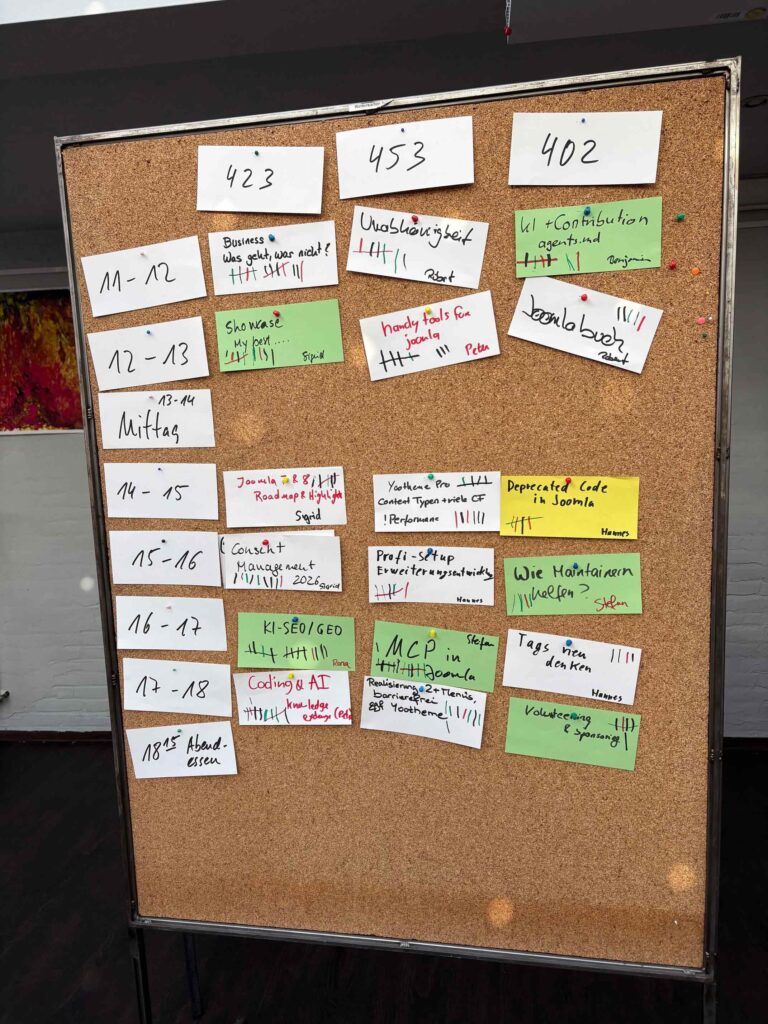 423
453
402
11-12
Business
Was geht, was nicht?
Unabhängigkeit
Robert
KI + Contribution
agents.md
Benjamin
12-13
Showcase
My best....
Sigrid
handy tools for
joomla
Peter
Joomlabuch
Robert
13-14
Mittag
14-15
Joomla 7 & 8
Roadmap & Highlights
Sigrid
Yootheme Pro
Content Typen + viele CF
! Performance
Deprecated Code
in Joomla
Hannes
15-16
Consent
Management
2026
Sigrid
Profi-Setup
Erweiterungsentwicklg
Hannes
Wie Maintainern
helfen?
Stefan
16-17
KI-SEO/GEO
Stefan
MCP in
Joomla
Tags neu
denken
Hannes
17-18
Coding & AI
knowledge
exchange
Realisierung 2+ Menüs,
barrierefrei
Yootheme
Volunteering
& Sponsoring
18 15 Abend-
essen